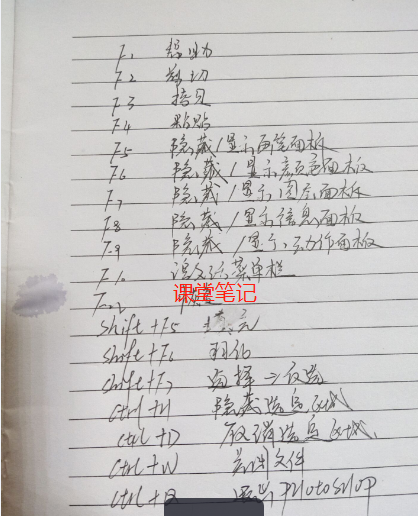 F1 帮助
F2 剪切
F3 拷贝
F4 粘贴
F5 隐藏/显示画笔面板
F6 隐藏/显示颜色面板
F7 隐藏/显示图层面板
F8 隐藏/显示信息面板
F9 隐藏/显示动作面板
F10 菜单栏
课堂笔记
shift+F5 填充
shift+F6 羽化
shift+F7 选择→反选
ctrl+H 隐藏选定区域
ctrl+D 取消选定区域
ctrl+W 关闭文件
ctrl+Q 退出Photoshop